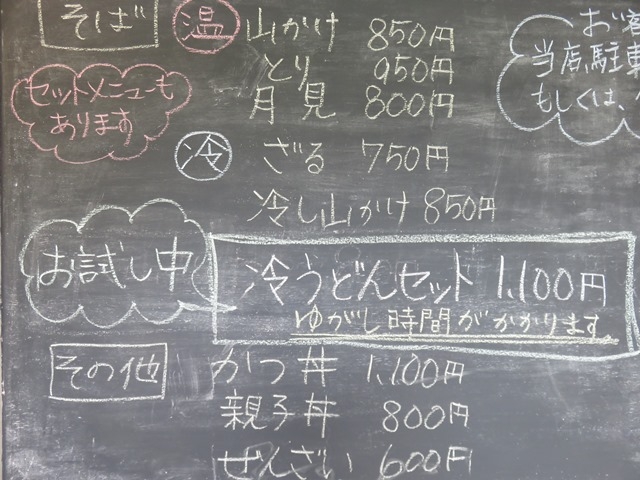 そば
温 山かけ 850円
とり 950円
月見 800円
セットメニューも
あります
冷 ざる 750円
冷し山かけ 850円
お試し中
冷うどんセット 1,100円
ゆがし時間がかかります
その他
かつ丼 1,100円
親子丼 800円
ぜんざい 600円
お客
当店、駐車
もしくは、